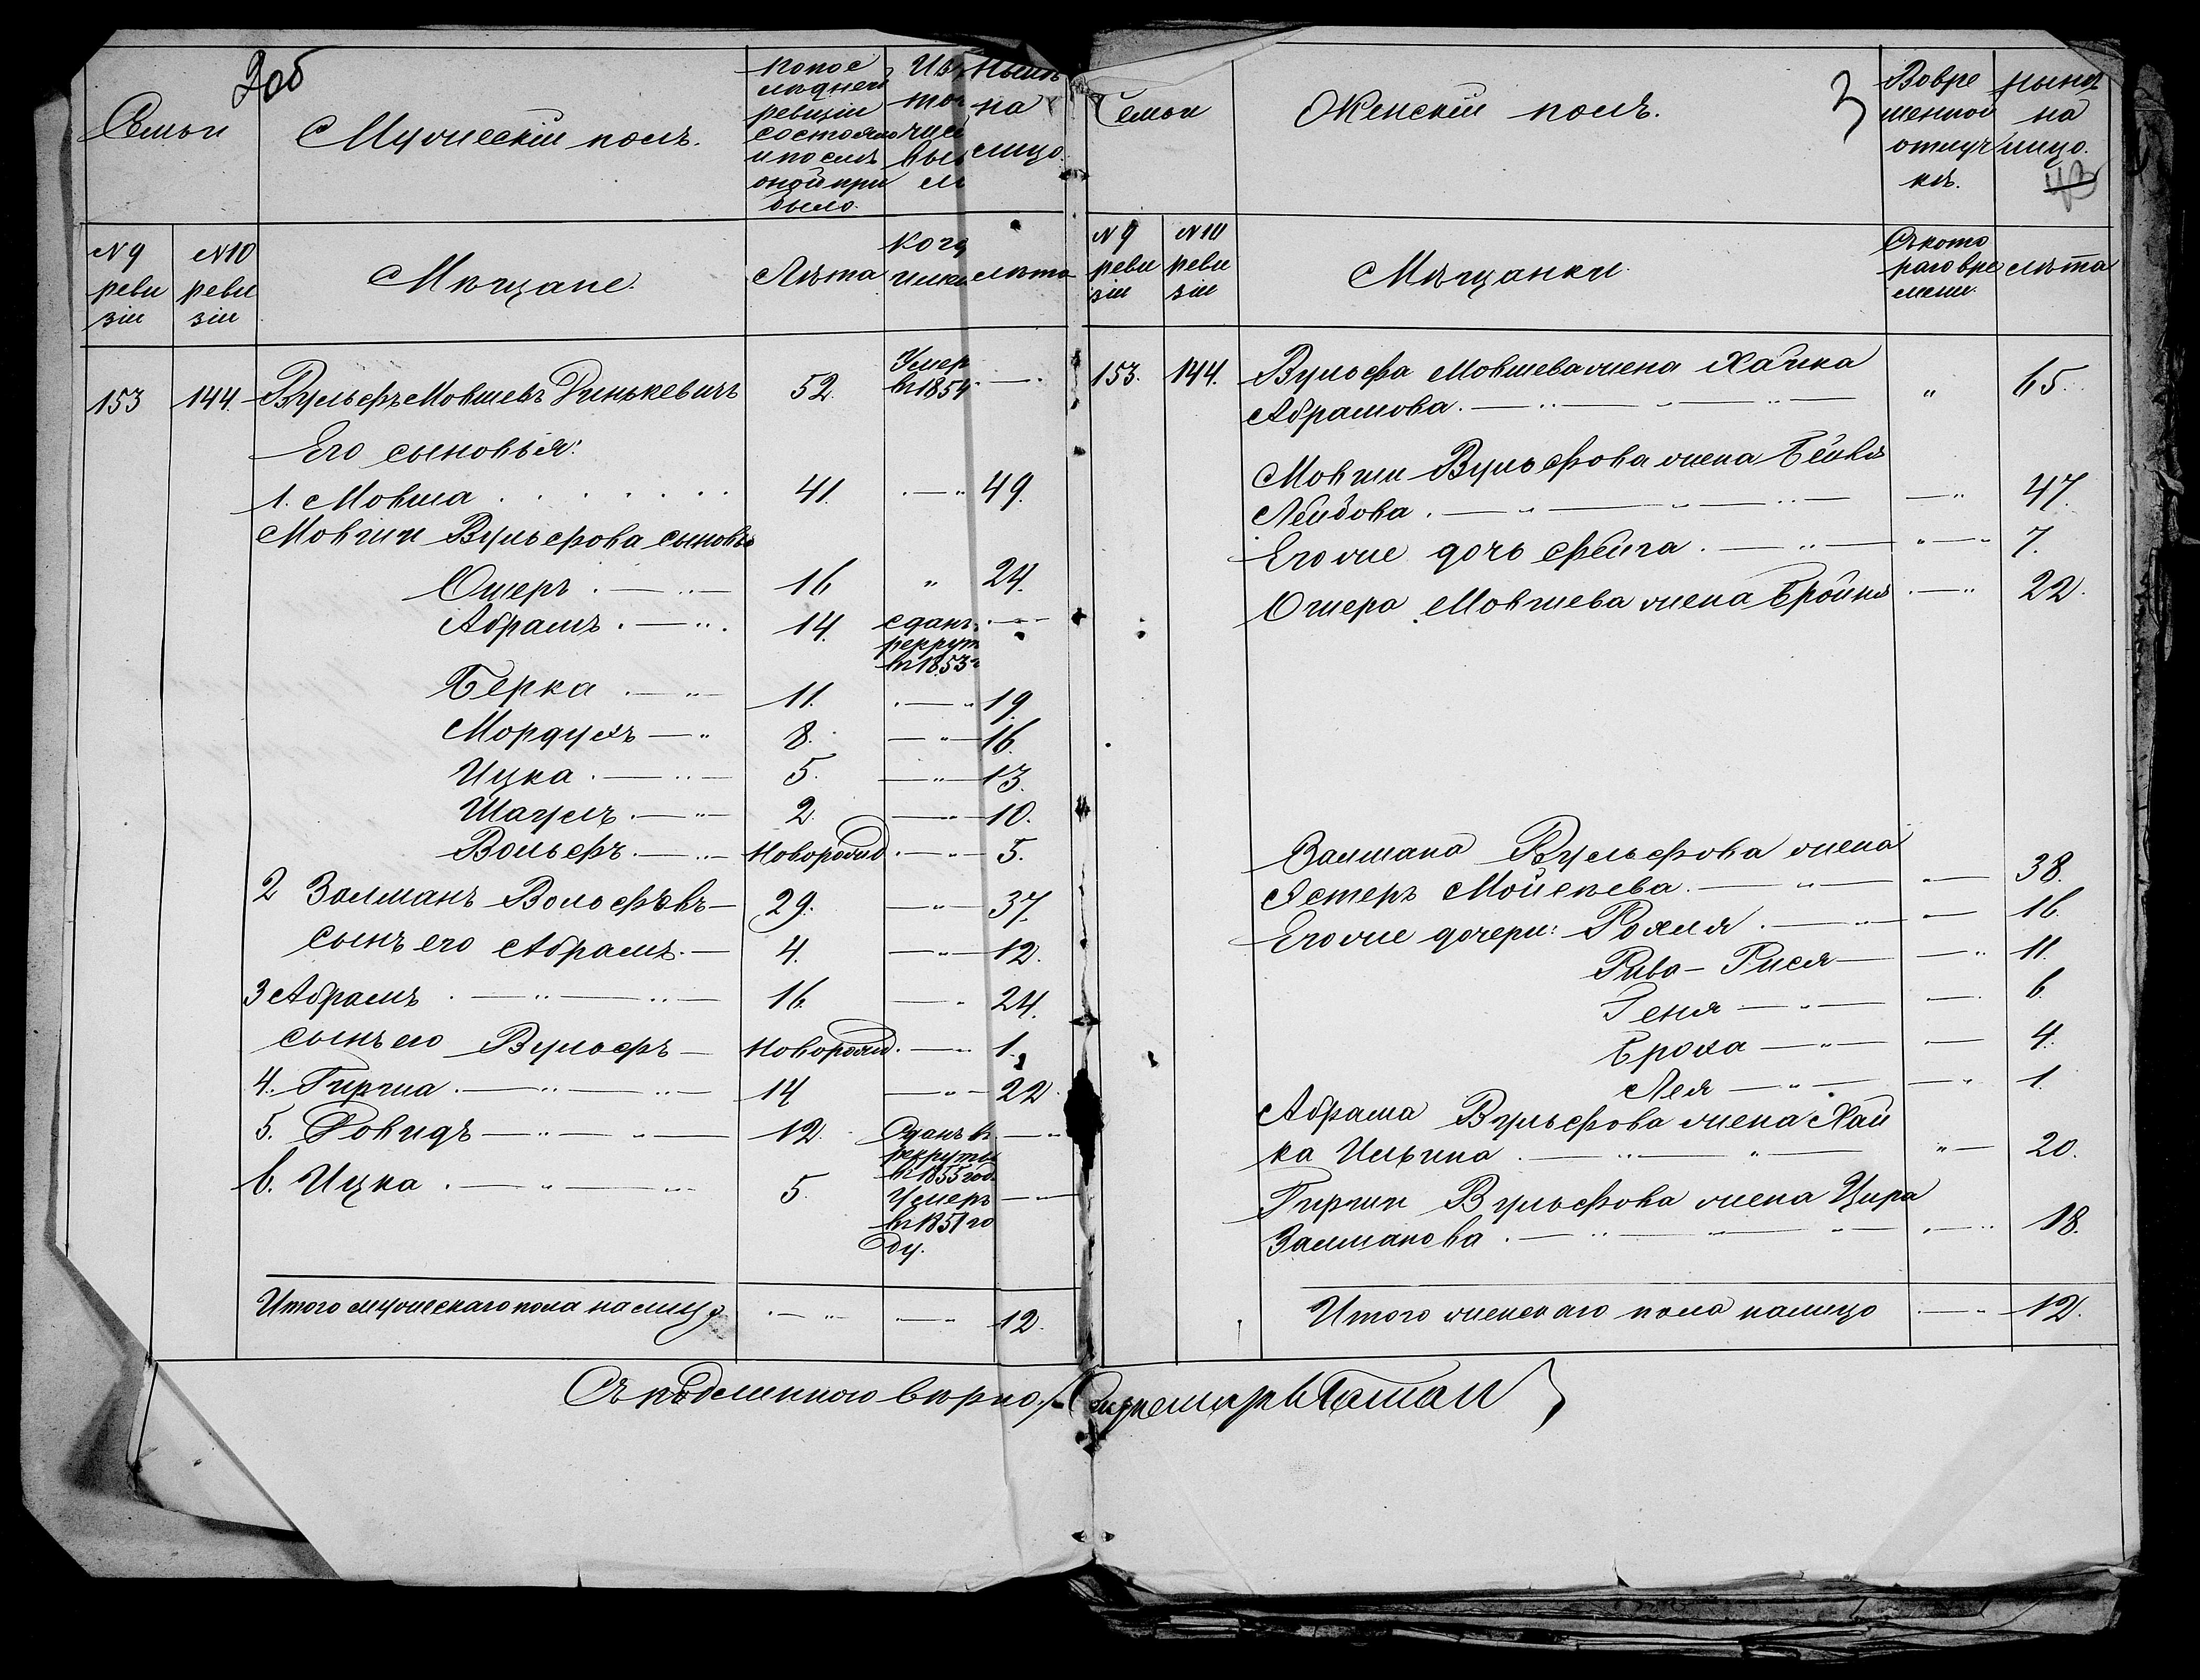 Семьи
Мужескій полъ.
по пос
лѣдней
ревизіи
состояло
и после
оной при
было.
на
лицо.
N 9
реви
зіи
N10
реви
зіи
Мѣщане.
Лѣта
лѣта
153 144. Вульфъ Мовшевъ 52. Умер въ 1854
Его сыновья:
1. Мовша 41. 49.
Мовши Вульфова сыновья
Ошеръ 16 " 24.
Абрамъ 14. сданъ рекрут въ 1853 г
Берка 11. 19.
Мордухъ 8. 16.
Ицка 5. 13.
Шаулъ 2. 10.
Вольфъ Новорожд 5.
2 Залманъ Вольфовъ 29. 37.
сынъ его Абрамъ 4. 12.
3 Абрамъ 16. 24.
сынъ его Вульфъ Новорожд. 1.
4. Гирша 14 22.
5. Довидъ 12. Сданъ въ рекруты въ 1855 год.
6. Ицка 5. Умеръ въ 1851 го ду.
Итого мужескаго пола на лицо 12.
Семьи
Женскій полъ.
3
Во вре
менной
отлуч
кѣ.
нынѣ
на
лицо.
N 9
реви
зіи
N10
реви
зіи
Мѣщанки.
Съ кото
раго вре
мени.
лѣта
153. 144. Вульфа Мовшева жена Хайка
Абрамова. " 65.
Мовши Вульфова жена Бейля
Лейбова. 47.
Его же дочь Фейга. 7.
Ошера Мовшева жена Бройня 22.
Залмана Вульфова жена
Эстеръ Мойсеева. 38.
Его же дочери: Рохля 16.
Рива-Рися 11.
Геня 6.
Броха 4.
Лея 1.
Абрама Вульфова жена Хай
ка Ильина 20.
Гирши Вульфова жена Цира
Залманова 18.
Итого женскаго пола налицо 12.
Съ подлиннымъ вѣрно: Секретарь